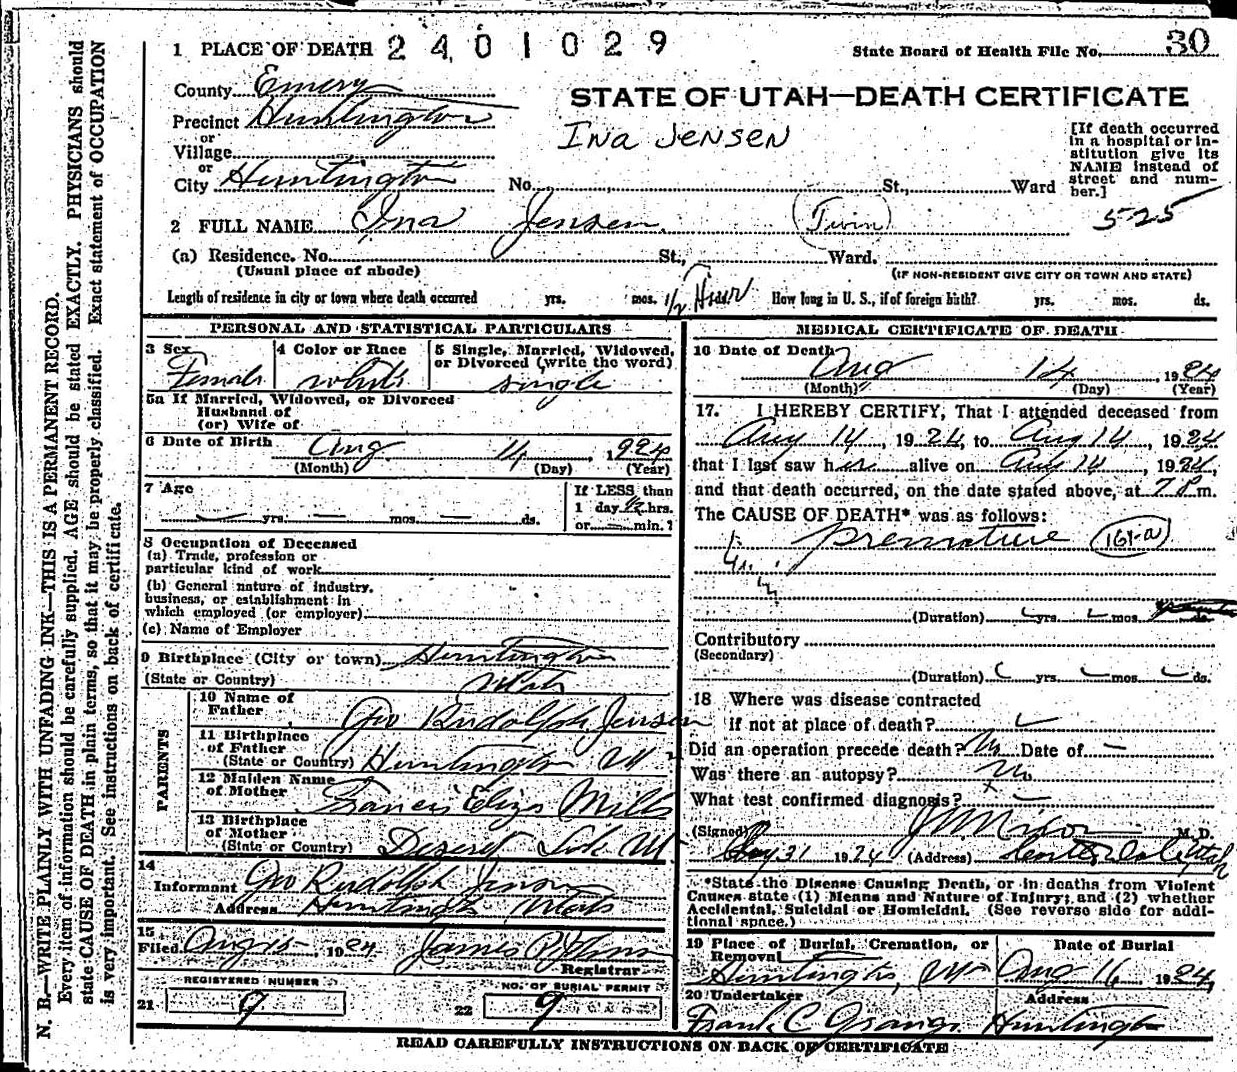 1 PLACE OF DEATH 2401029 State Board of Health File No. 30
County Emery
STATE OF UTAH—DEATH CERTIFICATE
Precinct Huntington
or
Village
or
City Huntington No. St., Ward
Ina Jensen
[If death occurred
in a hospital or in-
stitution give its
NAME instead of
street and num-
ber.]
525
2 FULL NAME Ina Jensen (Twin)
(a) Residence. No. St., Ward.
(Usual place of abode) (IF NON-RESIDENT GIVE CITY OR TOWN AND STATE)
Length of residence in city or town where death occurred yrs. mos. 1/2 Hour How long in U. S., if of foreign birth? yrs. mos. ds.
PERSONAL AND STATISTICAL PARTICULARS
3 Sex 4 Color or Race 5 Single, Married, Widowed,
or Divorced (write the word)
Female white single
5a If Married, Widowed, or Divorced
Husband of
(or) Wife of
6 Date of Birth Aug 14, 1924
(Month) (Day) (Year)
7 Age If LESS than
1 day 1/2 hrs.
— yrs. — mos. — ds. or — min.?
8 Occupation of Deceased
(a) Trade, profession or
particular kind of work
(b) General nature of industry,
business, or establishment in
which employed (or employer)
(c) Name of Employer
9 Birthplace (City or town) Huntington
(State or Country) Utah
PARENTS
10 Name of
Father Geo Rudolph Jensen
11 Birthplace
of Father
(State or Country) Huntington U
12 Maiden Name
of Mother Francis Eliza Mills
13 Birthplace
of Mother
(State or Country) Deseret
14
Informant Geo Rudolph Jensen
Address Huntington Utah
15
Filed Aug 15, 1924 James P.
Registrar
REGISTERED NUMBER NO. OF BURIAL PERMIT
21 9 22 9
MEDICAL CERTIFICATE OF DEATH
16 Date of Death Aug 14 1924
(Month) (Day) (Year)
17. I HEREBY CERTIFY, That I attended deceased from
Aug 14, 1924, to Aug 14, 1924,
that I last saw her alive on Aug 14, 1924,
and that death occurred, on the date stated above, at 7 P.m.
The CAUSE OF DEATH* was as follows:
premature (161-a)
(Duration) yrs. mos. ds.
Contributory
(Secondary)
(Duration) yrs. mos. ds.
18 Where was disease contracted
if not at place of death?
Did an operation precede death? No Date of —
Was there an autopsy? No
What test confirmed diagnosis?
(Signed) Nixon M. D.
31 1924 (Address) Utah
*State the Disease Causing Death, or in deaths from Violent
Causes state (1) Means and Nature of Injury; and (2) whether
Accidental, Suicidal or Homicidal. (See reverse side for addi-
tional space.)
19 Place of Burial, Cremation, or Date of Burial
Removal
Huntington, Utah Aug 16 1924
20 Undertaker Address
Frank C Grange Huntington
READ CAREFULLY INSTRUCTIONS ON BACK OF CERTIFICATE
N. B.—WRITE PLAINLY WITH UNFADING INK—THIS IS A PERMANENT RECORD.
Every item of information should be carefully supplied. AGE should be stated EXACTLY. PHYSICIANS should
state CAUSE OF DEATH in plain terms, so that it may be properly classified. Exact statement of OCCUPATION
is very important. See instructions on back of certificate.